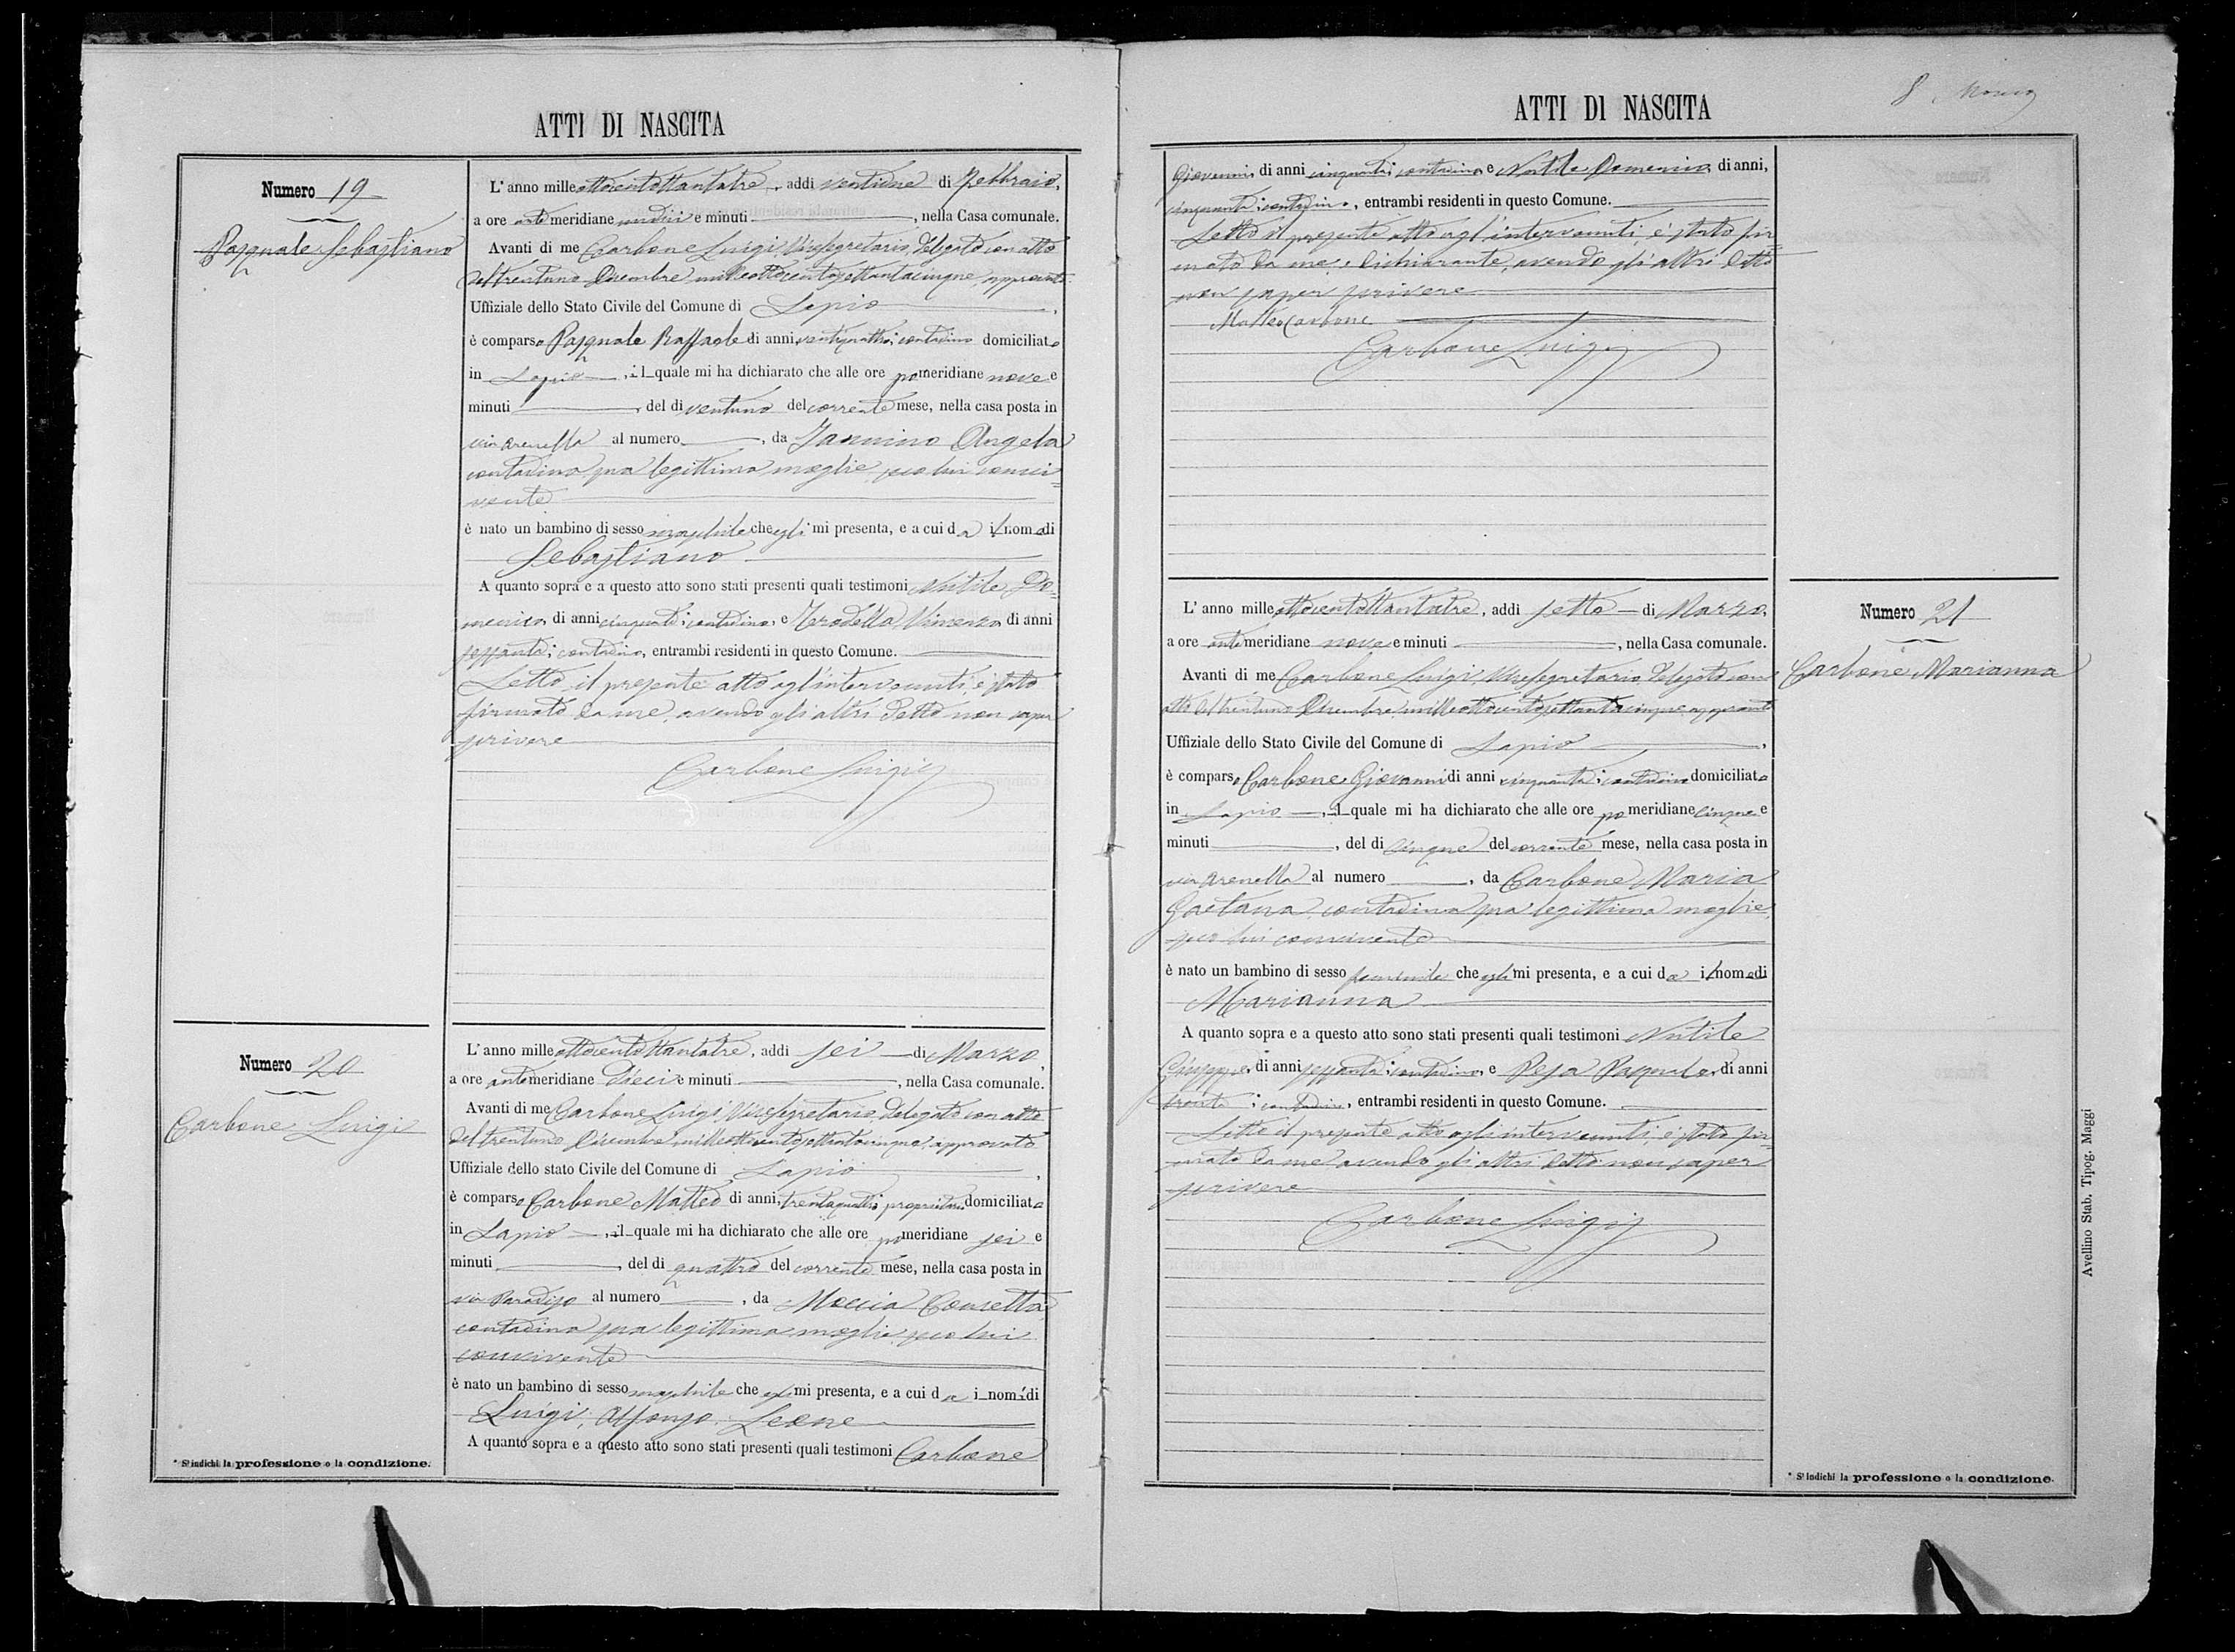 ATTI DI NASCITA
Numero 19
Pasquale Sebastiano
L'anno milleottocentottantatre, addi ventidue di Febbraio,
a ore antimeridiane undici e minuti, nella Casa comunale.
Avanti di me Carbone Luigi, Vicesegretario, delegato con atto
del trentuno Dicembre milleottocentosettantacinque, approvato
Uffiziale dello Stato Civile del Comune di Lapio,
è comparso Pasquale Raffaele di anni ventiquattro, contadino domiciliato
in Lapio, il quale mi ha dichiarato che alle ore pomeridiane nove e
minuti, del di ventuno del corrente mese, nella casa posta in
via Arenella al numero, da Iannino Angela
contadina sua legittima moglie, seco lui convi=
vente
è nato un bambino di sesso maschile che egli mi presenta, e a cui da il nome di
Sebastiano
A quanto sopra e a questo atto sono stati presenti quali testimoni Nutile Do=
menico, di anni cinquanta, contadino, e Vincenzo di anni
sessanta, contadino, entrambi residenti in questo Comune.
Letto il presente atto agl'intervenuti, è stato
firmato da me, avendo gli altri detto non saper
scrivere
Carbone Luigi
Numero 20
Carbone Luigi
L'anno milleottocentottantatre, addi sei di Marzo,
a ore antimeridiane dieci e minuti, nella Casa comunale.
Avanti di me Carbone Luigi, Vicesegretario, delegato con atto
del trentuno Dicembre milleottocentosettantacinque, approvato
Uffiziale dello stato Civile del Comune di Lapio,
è comparso Carbone Matteo di anni trentaquattro, proprietario domiciliato
in Lapio, il quale mi ha dichiarato che alle ore pomeridiane sei e
minuti, del di quattro del corrente mese, nella casa posta in
via Paradiso al numero, da Moccia Concetta,
contadina sua legittima moglie, seco lui
convivente
è nato un bambino di sesso maschile che egli mi presenta, e a cui da i nomi di
Luigi, Alfonso, Leone
A quanto sopra e a questo atto sono stati presenti quali testimoni Carbone
* S'indichi la professione o la condizione.
ATTI DI NASCITA
8
Giovanni, di anni cinquanta, contadino e Nutile Domenico, di anni,
cinquanta, contadino, entrambi residenti in questo Comune.
Letto il presente atto agl'intervenuti, è stato fir=
mato da me, e dichiarante, avendo gli altri detto
non saper scrivere
Matteo Carbone
Carbone Luigi
Numero 21
Carbone Marianna
L'anno milleottocentottantatre, addi sette di Marzo,
a ore antimeridiane nove e minuti, nella Casa comunale.
Avanti di me Carbone Luigi, Vicesegretario, delegato con
atto del trentuno Dicembre milleottocentosettantacinque, approvato
Uffiziale dello Stato Civile del Comune di Lapio,
è comparso Carbone Giovanni di anni cinquanta, contadino domiciliato
in Lapio, il quale mi ha dichiarato che alle ore pomeridiane cinque e
minuti, del di cinque del corrente mese, nella casa posta in
via Arenella al numero, da Carbone Maria
Gaetana, contadina sua legittima moglie,
seco lui convivente
è nato un bambino di sesso femminile che egli mi presenta, e a cui da il nome di
Marianna
A quanto sopra e a questo atto sono stati presenti quali testimoni Nutile
Giuseppe, di anni sessanta, contadino, e Pesa Pasquale, di anni
trenta, contadino, entrambi residenti in questo Comune.
Letto il presente atto agli intervenuti, è stato fir=
mato da me avendo gli altri detto non saper
scrivere
Carbone Luigi
* S'indichi la professione o la condizione.
Avellino Stab. Tipog. Maggi